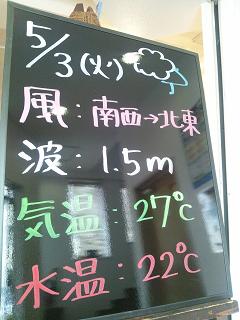 5/3(火)
風:南西→北東
波:1.5m
気温:27℃
水温:22℃